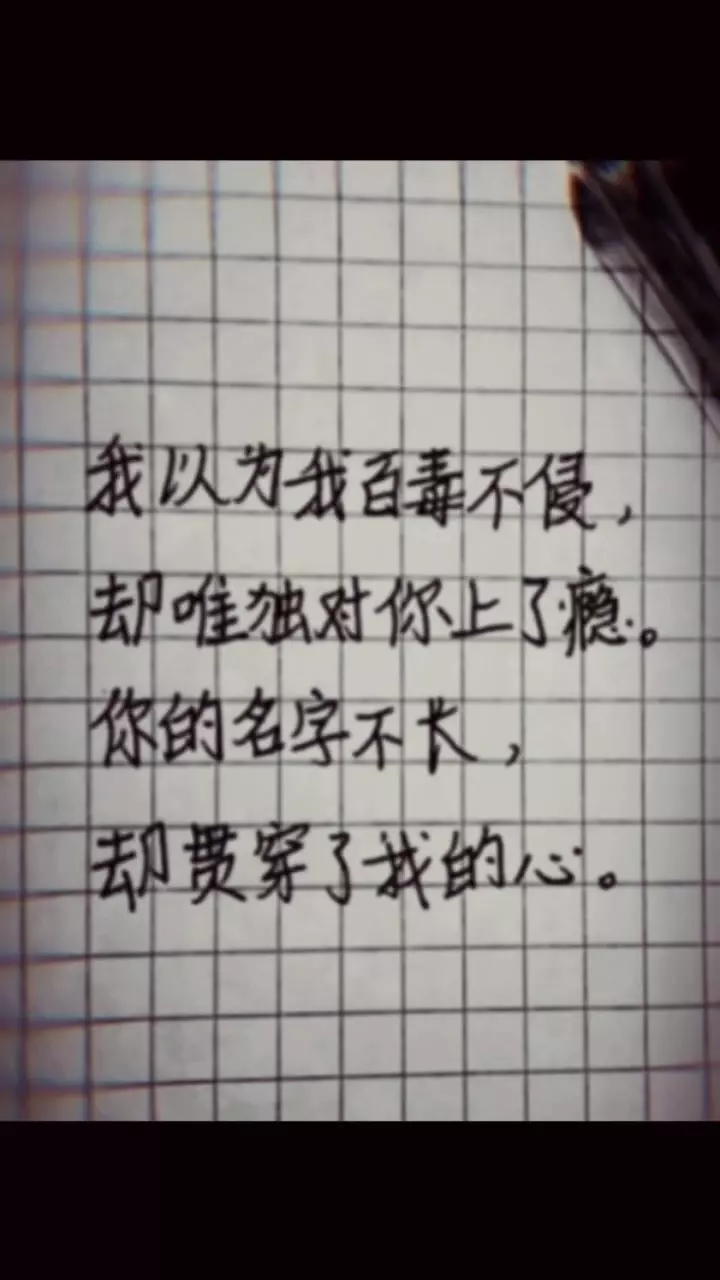 我以为我百毒不侵，
却唯独对你上了瘾。
你的名字不长，
却贯穿了我的心。